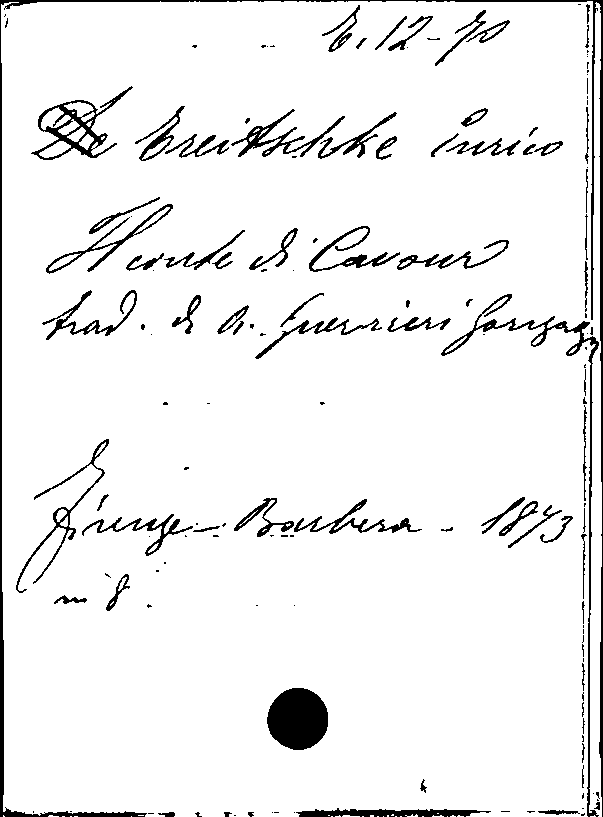 E. 12-70
De Treitschke Enrico
Il conte di Cavour
trad. di A. Guerrieri Gonzaga
Firenze - Barbera - 1873
in 8.